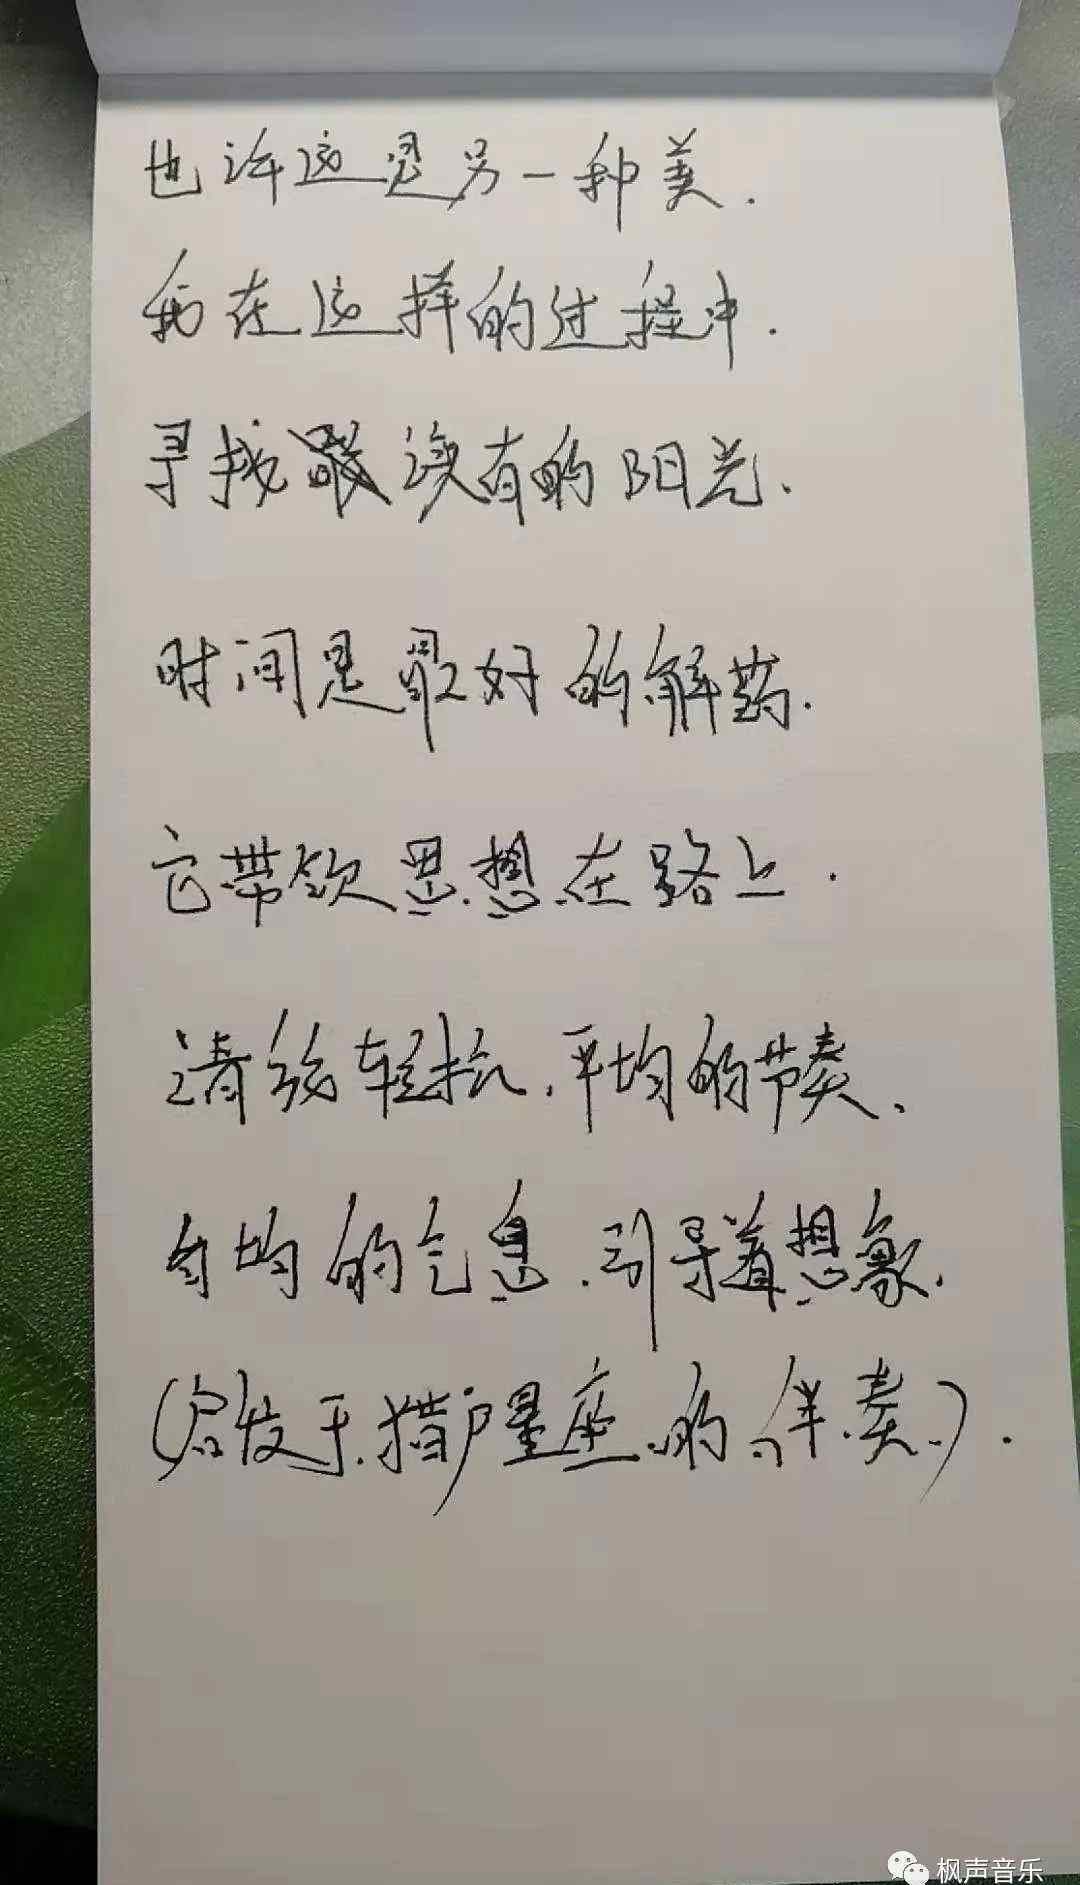 也许这是另一种美.
我在这样的过程中.
寻找没有的阳光.
时间是最好的解药.
它带领思想在路上.
清弦轻拉.平均的节奏.
匀均的气息.引导着想象.
(启发于.猎户星座的伴奏.).
枫声音乐